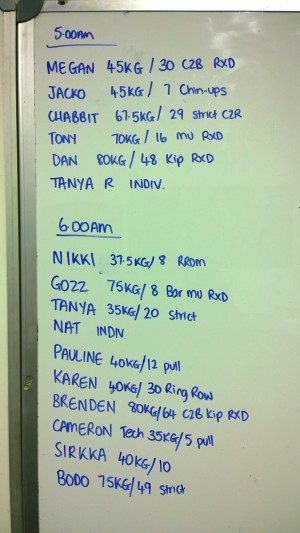 5:00am
MEGAN 45KG / 30 C2B RXD
JACKO 45KG / 7 Chin-ups
CHABBIT 67.5KG / 29 strict C2R
TONY 70KG / 16 MU RXD
DAN 80KG / 48 Kip RXD
TANYA R INDIV.
6:00AM
NIKKI 37.5KG / 8 RROM
GOZZ 75KG / 8 Bar MU RXD
TANYA 35KG / 20 strict
NAT INDIV
PAULINE 40KG / 12 pull
KAREN 40KG / 30 Ring Row
BRENDEN 80KG / 64 C2B Kip RXD
CAMERON Tech 35KG / 5 pull
SIRKKA 40KG / 10
BODO 75KG / 49 strict